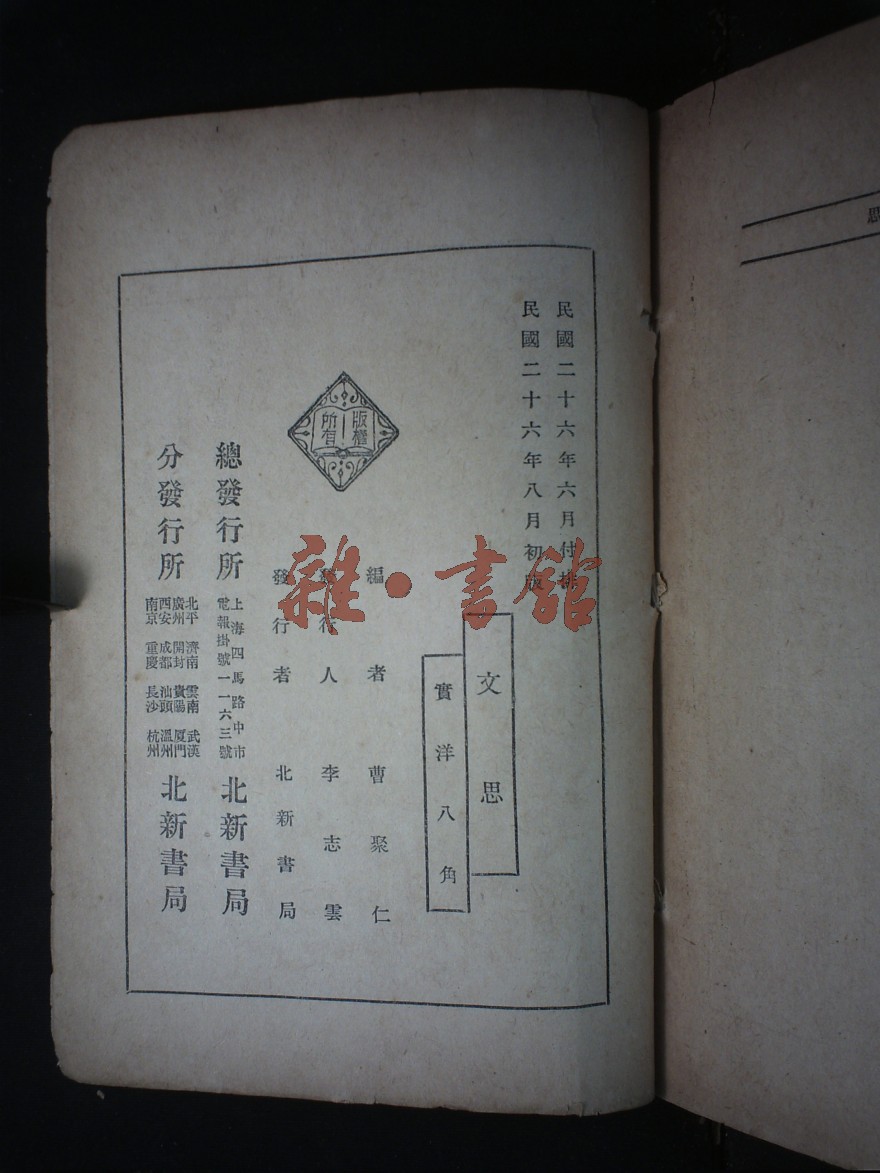 民國二十六年六月付排
民國二十六年八月初版
文思
實洋八角
版權
所有
編者 曹聚仁
發行人 李志雲
發行者 北新書局
總發行所 上海四馬路中市
電報掛號一一六三號
北新書局
分發行所
北平 濟南 雲南 武漢
廣州 開封 貴陽 厦門
西安 成都 汕頭 溫州
南京 重慶 長沙 杭州
北新書局
雜·書館
思